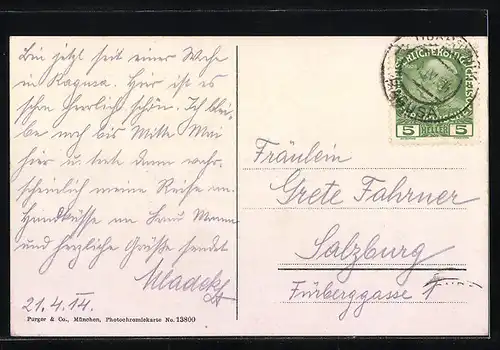 Bin jetzt seit einer Woche
in Ragusa. Hier ist es
schon herrlich schön. Ich blei-
be noch bis Mitte Mai
hier u. trete dann wahr-
scheinlich meine Reise an.
Handküsse an Frau Mama
und herzliche Grüße sendet
21.4.14.
Purger & Co., München, Photochromiekarte No. 13800
5 HELLER 5
Fräulein
Grete Fahrner
Salzburg
Fürberggasse 1